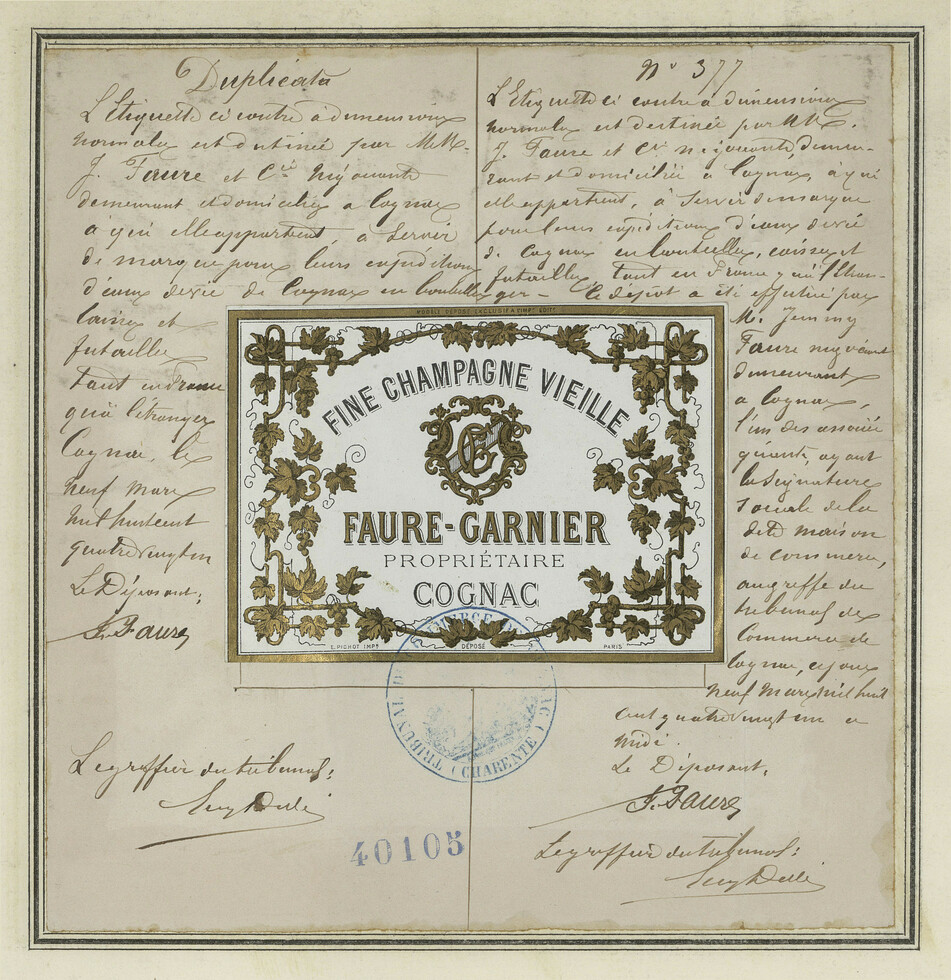 Duplicata
L'Etiquette ci contre à dimensions
normales est destinée par M.M.
J. Faure et Cie Négociants
demeurant et domiciliés a Cognac
à qui elle appartient, a servir
de marque pour leurs expéditions
d'eaux de vie de Cognac en bouteilles
caisses et
futailles
tant en France
qu'à l'étranger
Cognac, le
neuf mars
mil huit cent
quatre vingt un
Le Déposant:
J. Faure
Le greffier du tribunal:
No 377
L'Etiquette ci contre à dimensions
normales est destinée par M.M.
J. Faure et Cie négociants, demeu-
rant et domiciliés à Cognac, à qui
elle appartient, à servir de marque
pour leurs expéditions d'eaux de vie
de Cognac en bouteilles, caisses et
futailles tant en France qu'à l'étran-
ger — Ce dépôt a été effectué par
M. Jemmy
Faure négociant
demeurant
a Cognac,
l'un des associés
gérants, ayant
la signature
sociale de la
dite maison
de commerce,
au greffe du
tribunal de
Commerce de
Cognac, ce jour
neuf mars mil huit
cent quatre vingt un a
midi.
Le Déposant,
J. Faure
Le greffier du tribunal:
MODÈLE DÉPOSÉ EXCLUSIF A L'IMPR. EDITR.
FINE CHAMPAGNE VIEILLE
FAURE-GARNIER
PROPRIÉTAIRE
COGNAC
L. PICHOT IMPR. DÉPOSÉ PARIS
TRIBUNAL DE COMMERCE DE COGNAC (CHARENTE)
40105